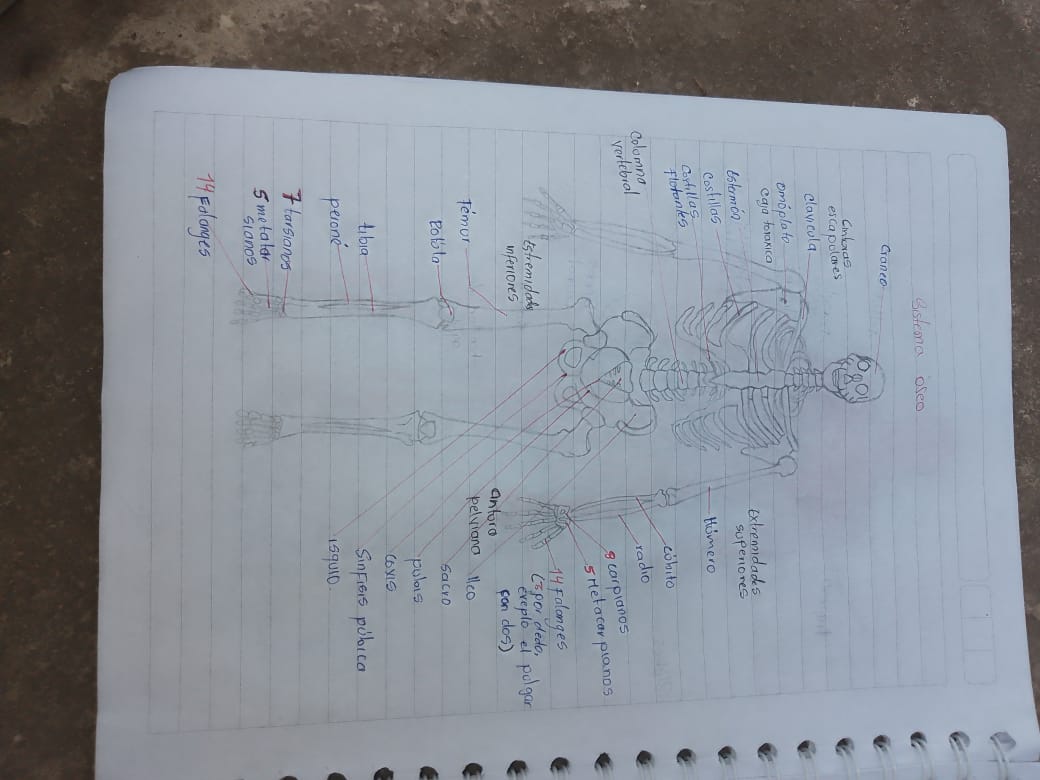 Sistema óseo
Craneo
Cinturas
escapulares
Clavicula
omóplato
caja toraxica
esternón
costillas
Costillas
flotantes
Columna
vertebral
Extremidades
superiores
Húmero
cúbito
radio
8 carpianos
5 Metacarpianos
14 Falanges
(3 por dedo,
exepto el pulgar
con dos)
Estremidades
inferiores
Fémur
Rótula
tibia
peroné
7 tarsianos
5 metatar
sianos
14 Falanges
cintura
pelviana
Ilíco
sacro
pubis
coxis
Sinfisis púbica
isquio.